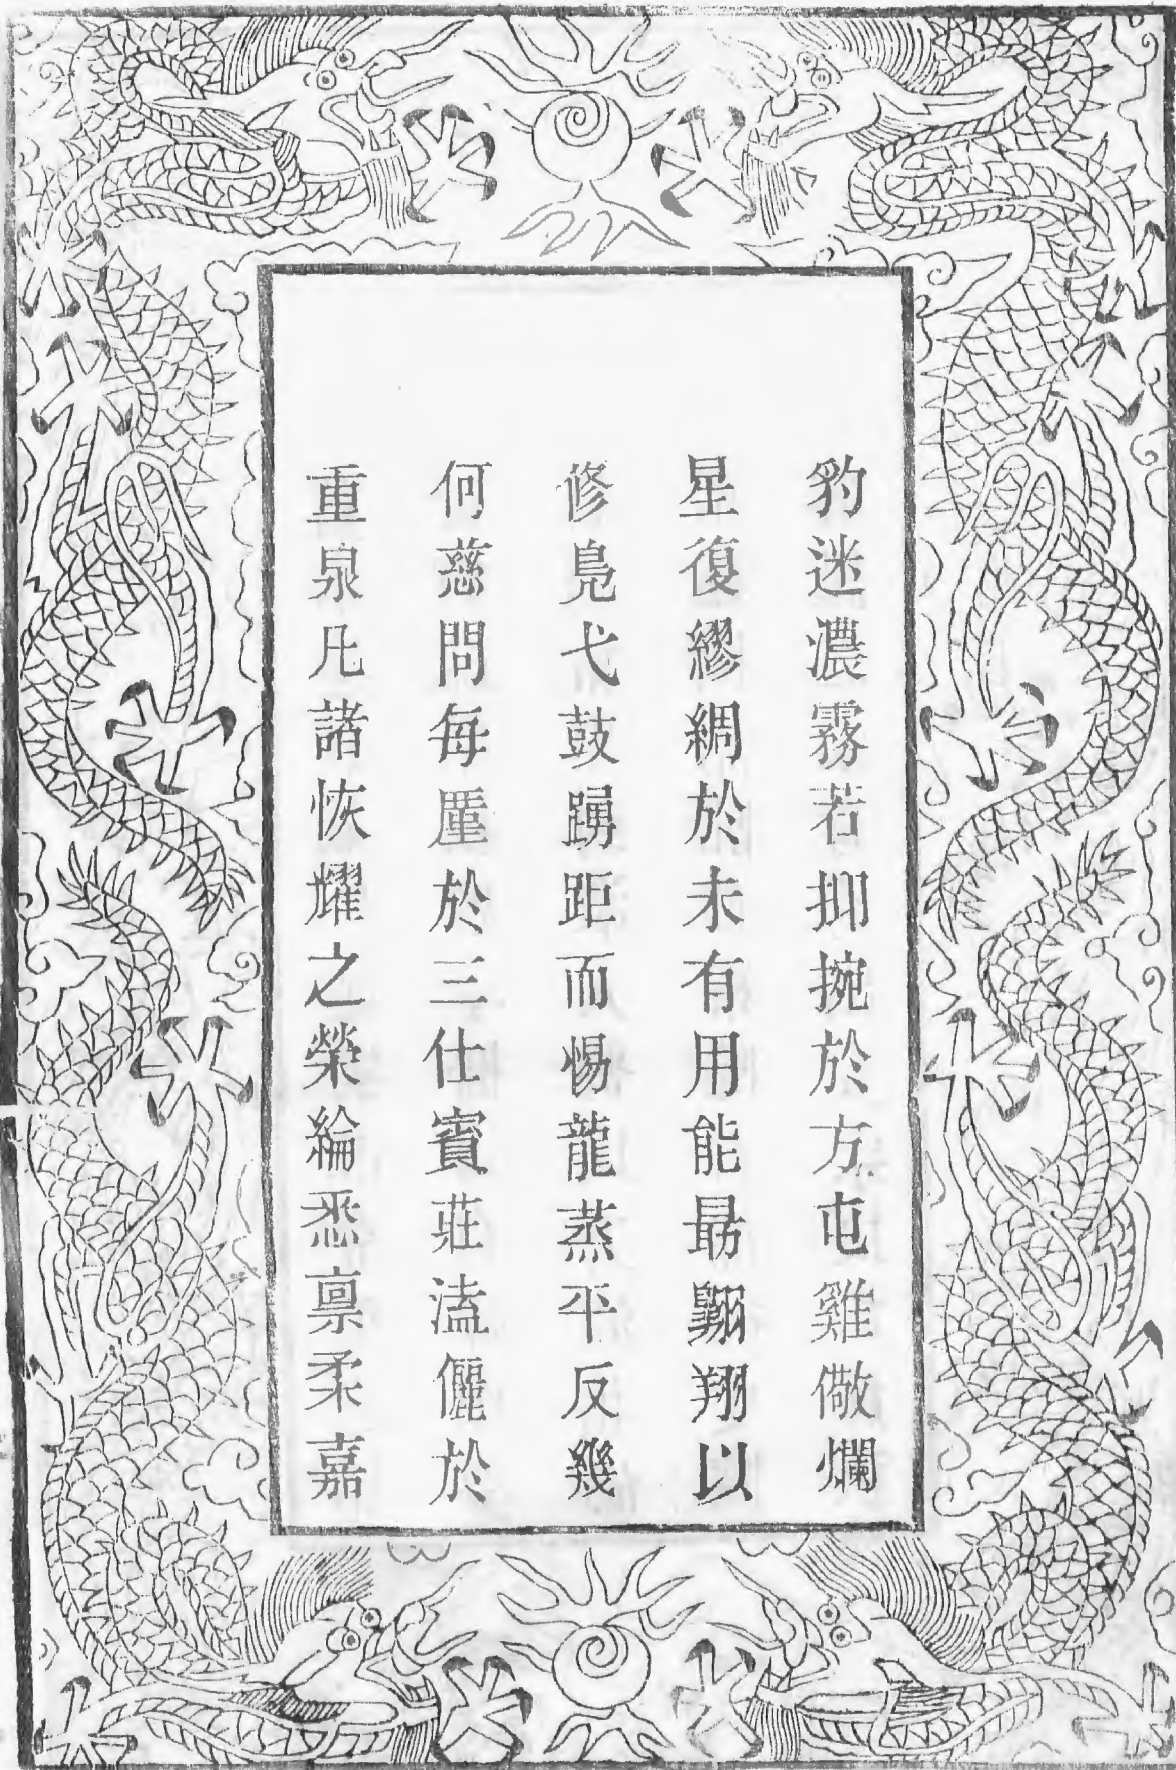 豹迷濃霧若抑捥於方屯雞儆爛
星復繆綢於未有用能最翾翔以
修鳧弋鼓踴距而惕龍蒸平反幾
何慈問每厪於三仕賓莊溘儷於
重泉凡諸恢耀之榮綸悉稟柔嘉